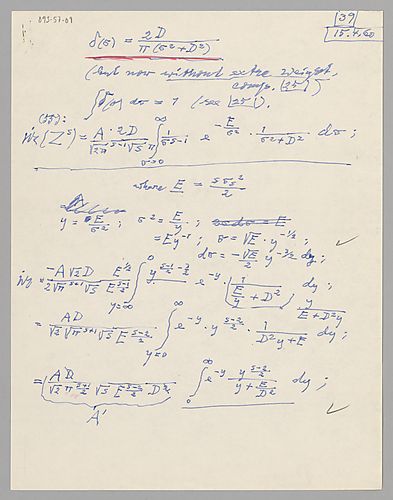 093-57-09
39
15.4.60
δ(σ) = 2D / π(σ²+D²)
(but now without extra weight,
comp. |25|)
∫ δ(σ) dσ = 1 (see |25|).
(55):
(Z^s) = A · 2D / √2π^(s-1) √s π ∫_(σ=0)^∞ 1/σ^(s-1) e^(-E/σ²) · 1/(σ²+D²) dσ ;
where E = s σ_s² / 2
y = E/σ² ; σ² = E/y ;
= E y^-1 ; σ = √E · y^(-1/2) ; ✓
dσ = -√E/2 y^(-3/2) dy ;
= -A √2 D E^(1/2) / 2√π^(s+1) √s E^((s-1)/2) ∫_(y=∞)^0 y^((s-1)/2 - 3/2) e^-y · 1/(E/y + D²) dy ;
y / E+D²y
= AD / √2 √π^(s+1) √s E^((s-2)/2) ∫_(y=0)^∞ e^-y · y^((s-2)/2) · 1/(D²y+E) dy ;
= AD / √2 π^((s+1)/2) √s E^((s-2)/2) D² ∫_0^∞ e^-y · y^((s-2)/2) / (y + E/D²) dy ;
A' ✓